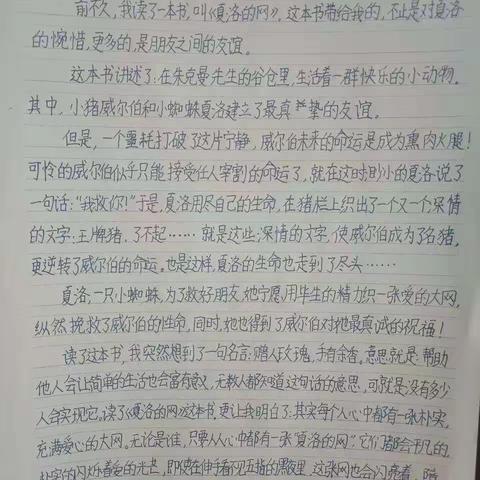 前不久,我读了一本书,叫《夏洛的网》。这本书带给我的,不止是对夏洛
的惋惜,更多的,是朋友之间的友谊。
这本书讲述了:在朱克曼先生的谷仓里,生活着一群快乐的小动物。
其中,小猪威尔伯和小蜘蛛夏洛建立了最真挚的友谊。
但是,一个噩耗打破了这片宁静,威尔伯未来的命运是成为熏肉火腿!
可怜的威尔伯似乎只能接受任人宰割的命运了,就在这时,渺小的夏洛说了
一句话:“我救你!”于是,夏洛用尽自己的生命,在猪栏上织出了一个又一个深情
的文字:王牌猪,了不起……就是这些深情的文字,使威尔伯成为了名猪,
更逆转了威尔伯的命运。也是这样,夏洛的生命也走到了尽头……
夏洛,一只小蜘蛛,为了救好朋友,她宁愿用毕生的精力织一张爱的大网,
纵然挽救了威尔伯的性命,同时,她也得到了威尔伯对她最真诚的祝福!
读了这本书,我突然想到了一句名言:赠人玫瑰,手有余香。意思就是:帮助
他人会让简单的生活也会富有意义,无数人都知道这句话的意思,可就是没有多少
人会实现它。读了《夏洛的网》这本书,更让我明白了:其实每个人心中都有一张朴实,
充满爱心的大网。无论是谁,只要人心中都有一张“夏洛的网”,它们都会平凡的,
朴实的闪烁着爱的光芒,即使在伸手看不见五指的黑夜里,这张网也会闪亮着,陪